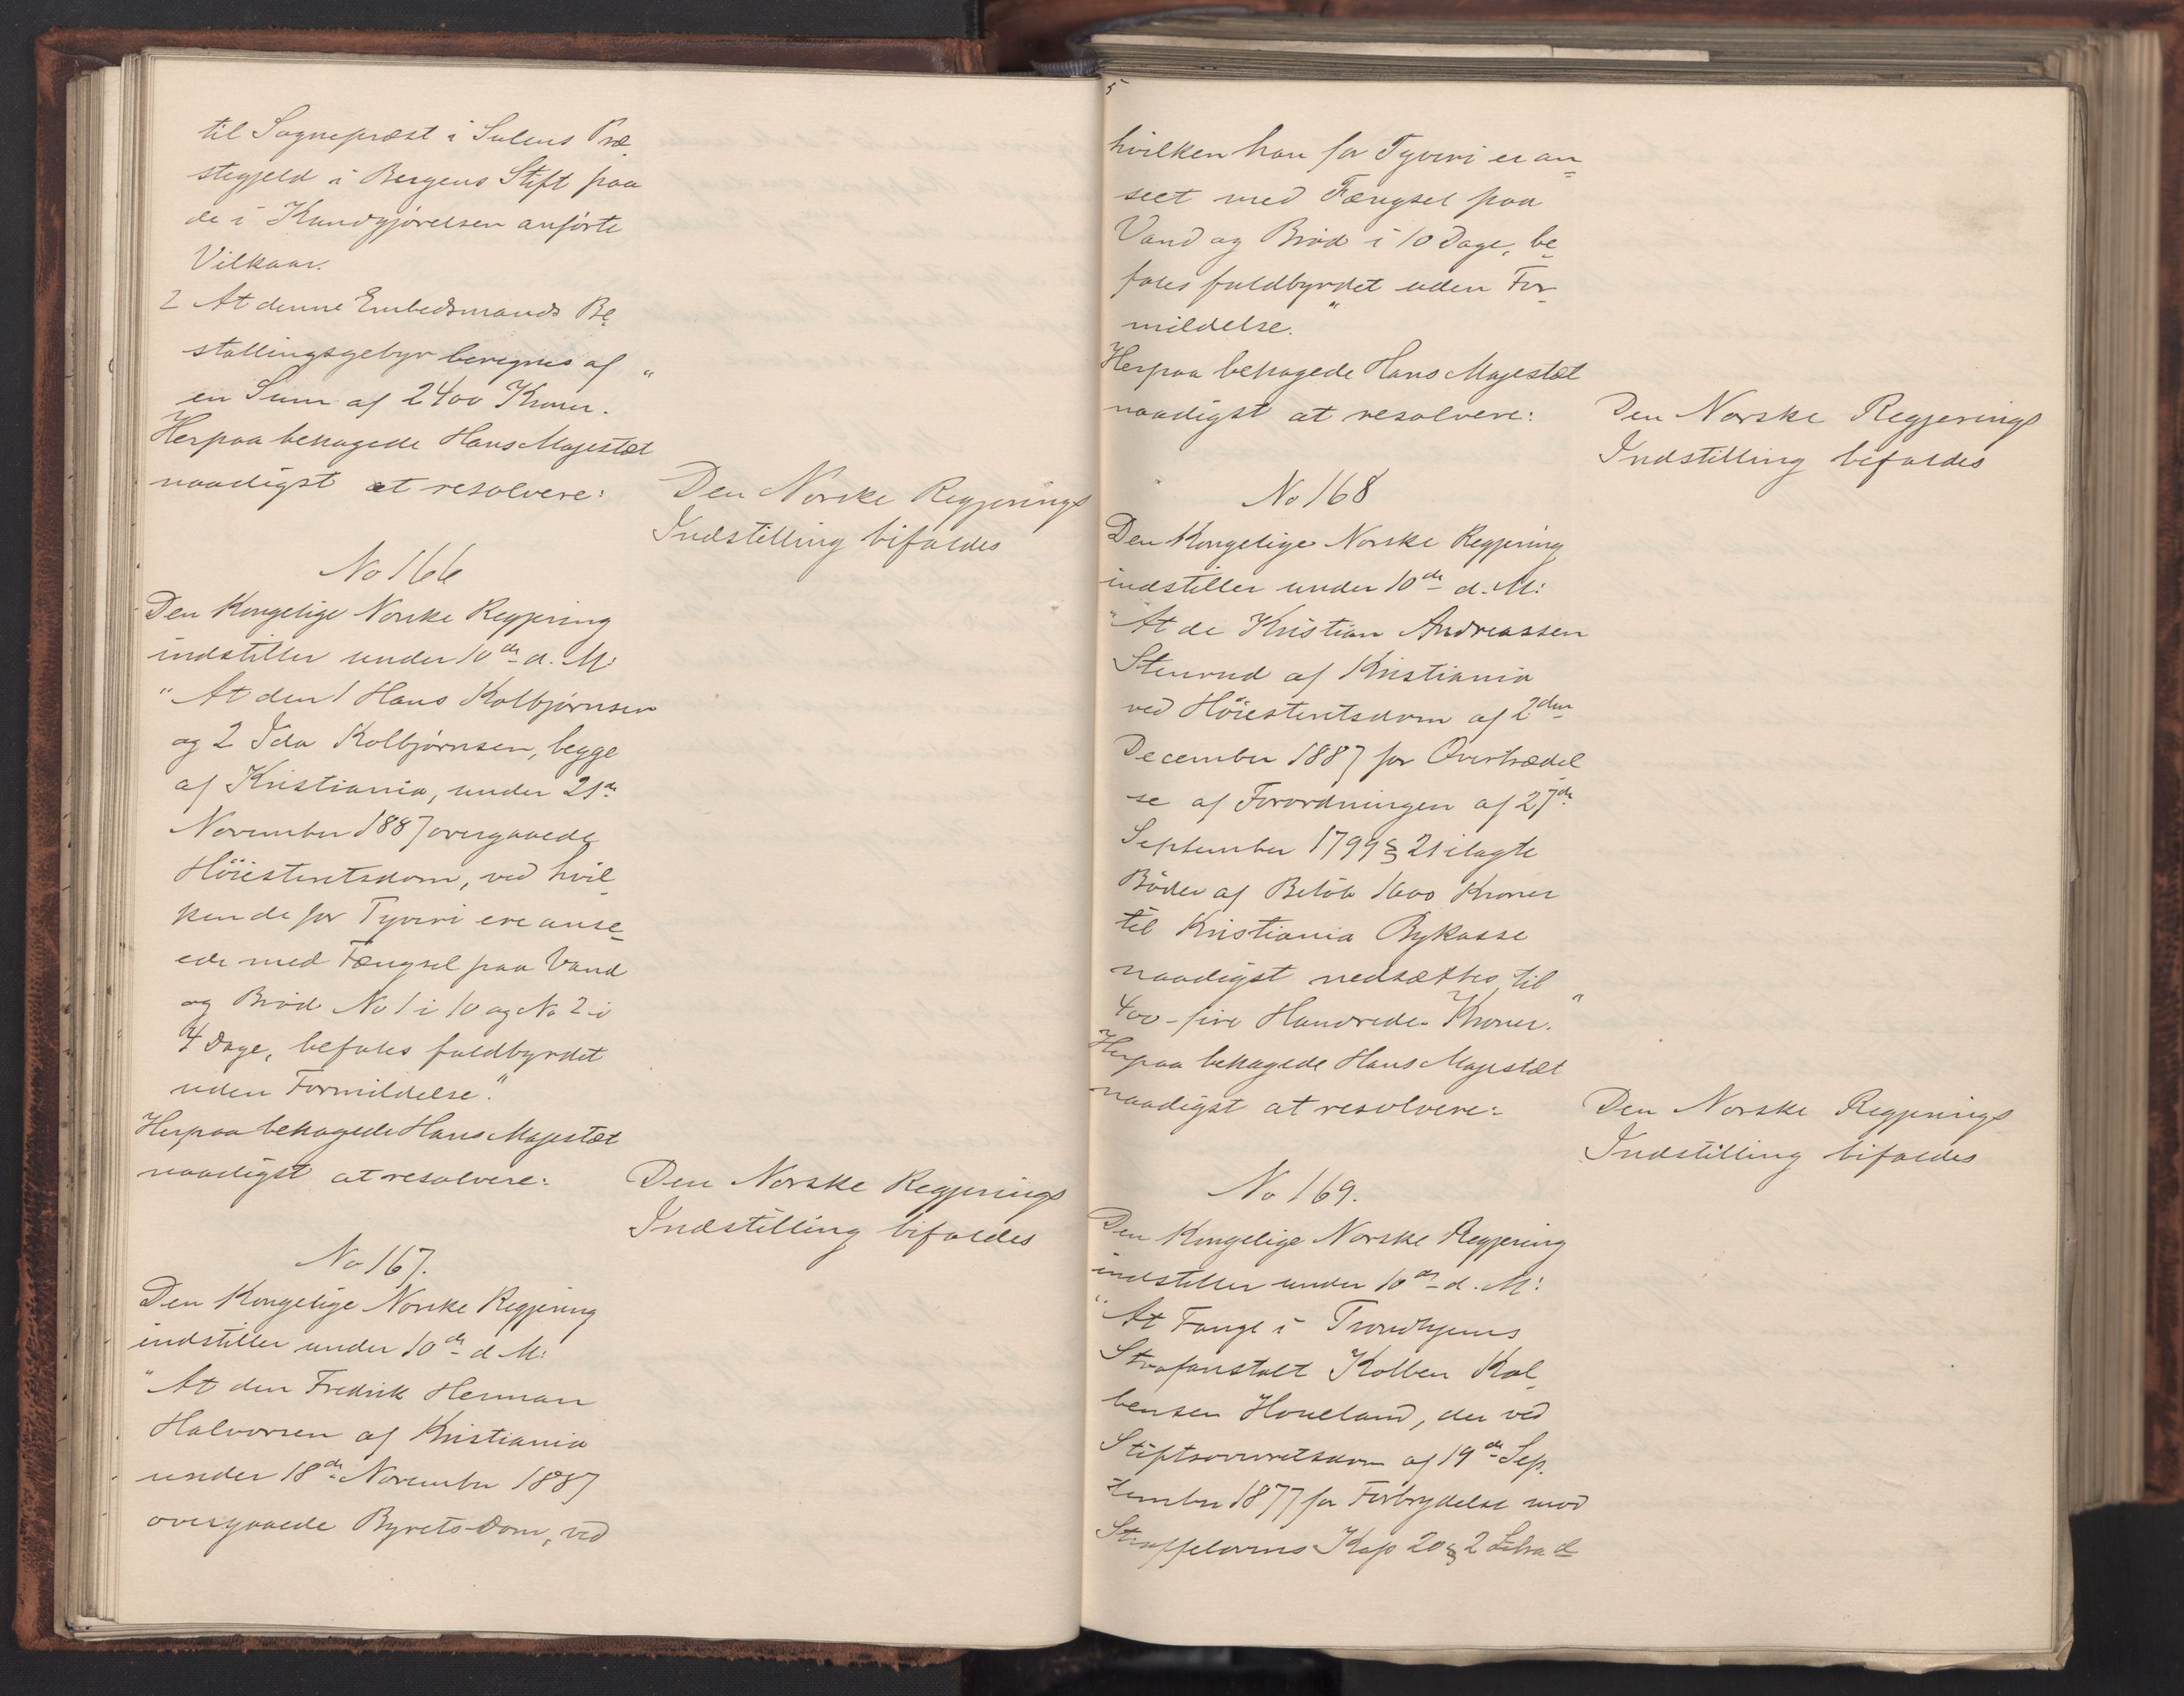 til Sognepræst i Sulens Præ-
stegjeld i Bergens Stift paa
de i Kundgjørelsen anførte
Vilkaar.
2 At denne Embedsmands Be-
stallingsgebyr beregnes af
en Sum af 2400 Kroner."
Herpaa behagede Hans Majestæt
naadigst at resolvere:
Den Norske Regjerings
Indstilling bifaldes
No 166
Den Kongelige Norske Regjering
indstiller under 10de d. M:
"At den 1 Hans Kolbjørnsen
og 2 Ida Kolbjørnsen, begge
af Kristiania, under 21de
November 1887 overgaaede
Höiesteretsdom, ved hvil-
ken de for Tyveri ere anse-
ede med Fængsel paa Vand
og Brød No 1 i 10 og No 2 i
4 Dage, befales fuldbyrdet
uden Formildelse."
Herpaa behagede Hans Majestæt
naadigst at resolvere:
Den Norske Regjerings
Indstilling bifaldes
No 167.
Den Kongelige Norske Regjering
indstiller under 10de d M:
"At den Fredrik Herman
Halvorsen af Kristiania
under 18de November 1887
overgaaede Byrets-Dom, ved
5
hvilken han for Tyveri er an-
seet med Fængsel paa
Vand og Brød i 10 Dage, be-
fales fuldbyrdet uden For-
mildelse."
Herpaa behagede Hans Majestæt
naadigst at resolvere:
Den Norske Regjerings
Indstilling bifaldes
No 168
Den Kongelige Norske Regjering
indstiller under 10de d. M:
"At de Kristian Andreassen
Stenrud af Kristiania
ved Höiesteretsdom af 2den
December 1887 for Overtrædel
se af Forordningen af 27de
September 1799 § 21 ilagte
Bøder af Beløb 1600 Kroner
til Kristiania Bykasse
naadigst nedsættes til
400 - fire Hundrede - Kroner."
Herpaa behagede Hans Majestæt
naadigst at resolvere:
Den Norske Regjerings
Indstilling bifaldes
No 169.
Den Kongelige Norske Regjering
indstiller under 10de d. M:
"At Fange i Trondhjems
Strafanstalt Kolben Kol-
bensen Houeland, der ved
Stiftsoverretsdom af 19de Sep-
tember 1877 for Forbrydelse mod
Straffelovens Kap 20 § 2 Litra d